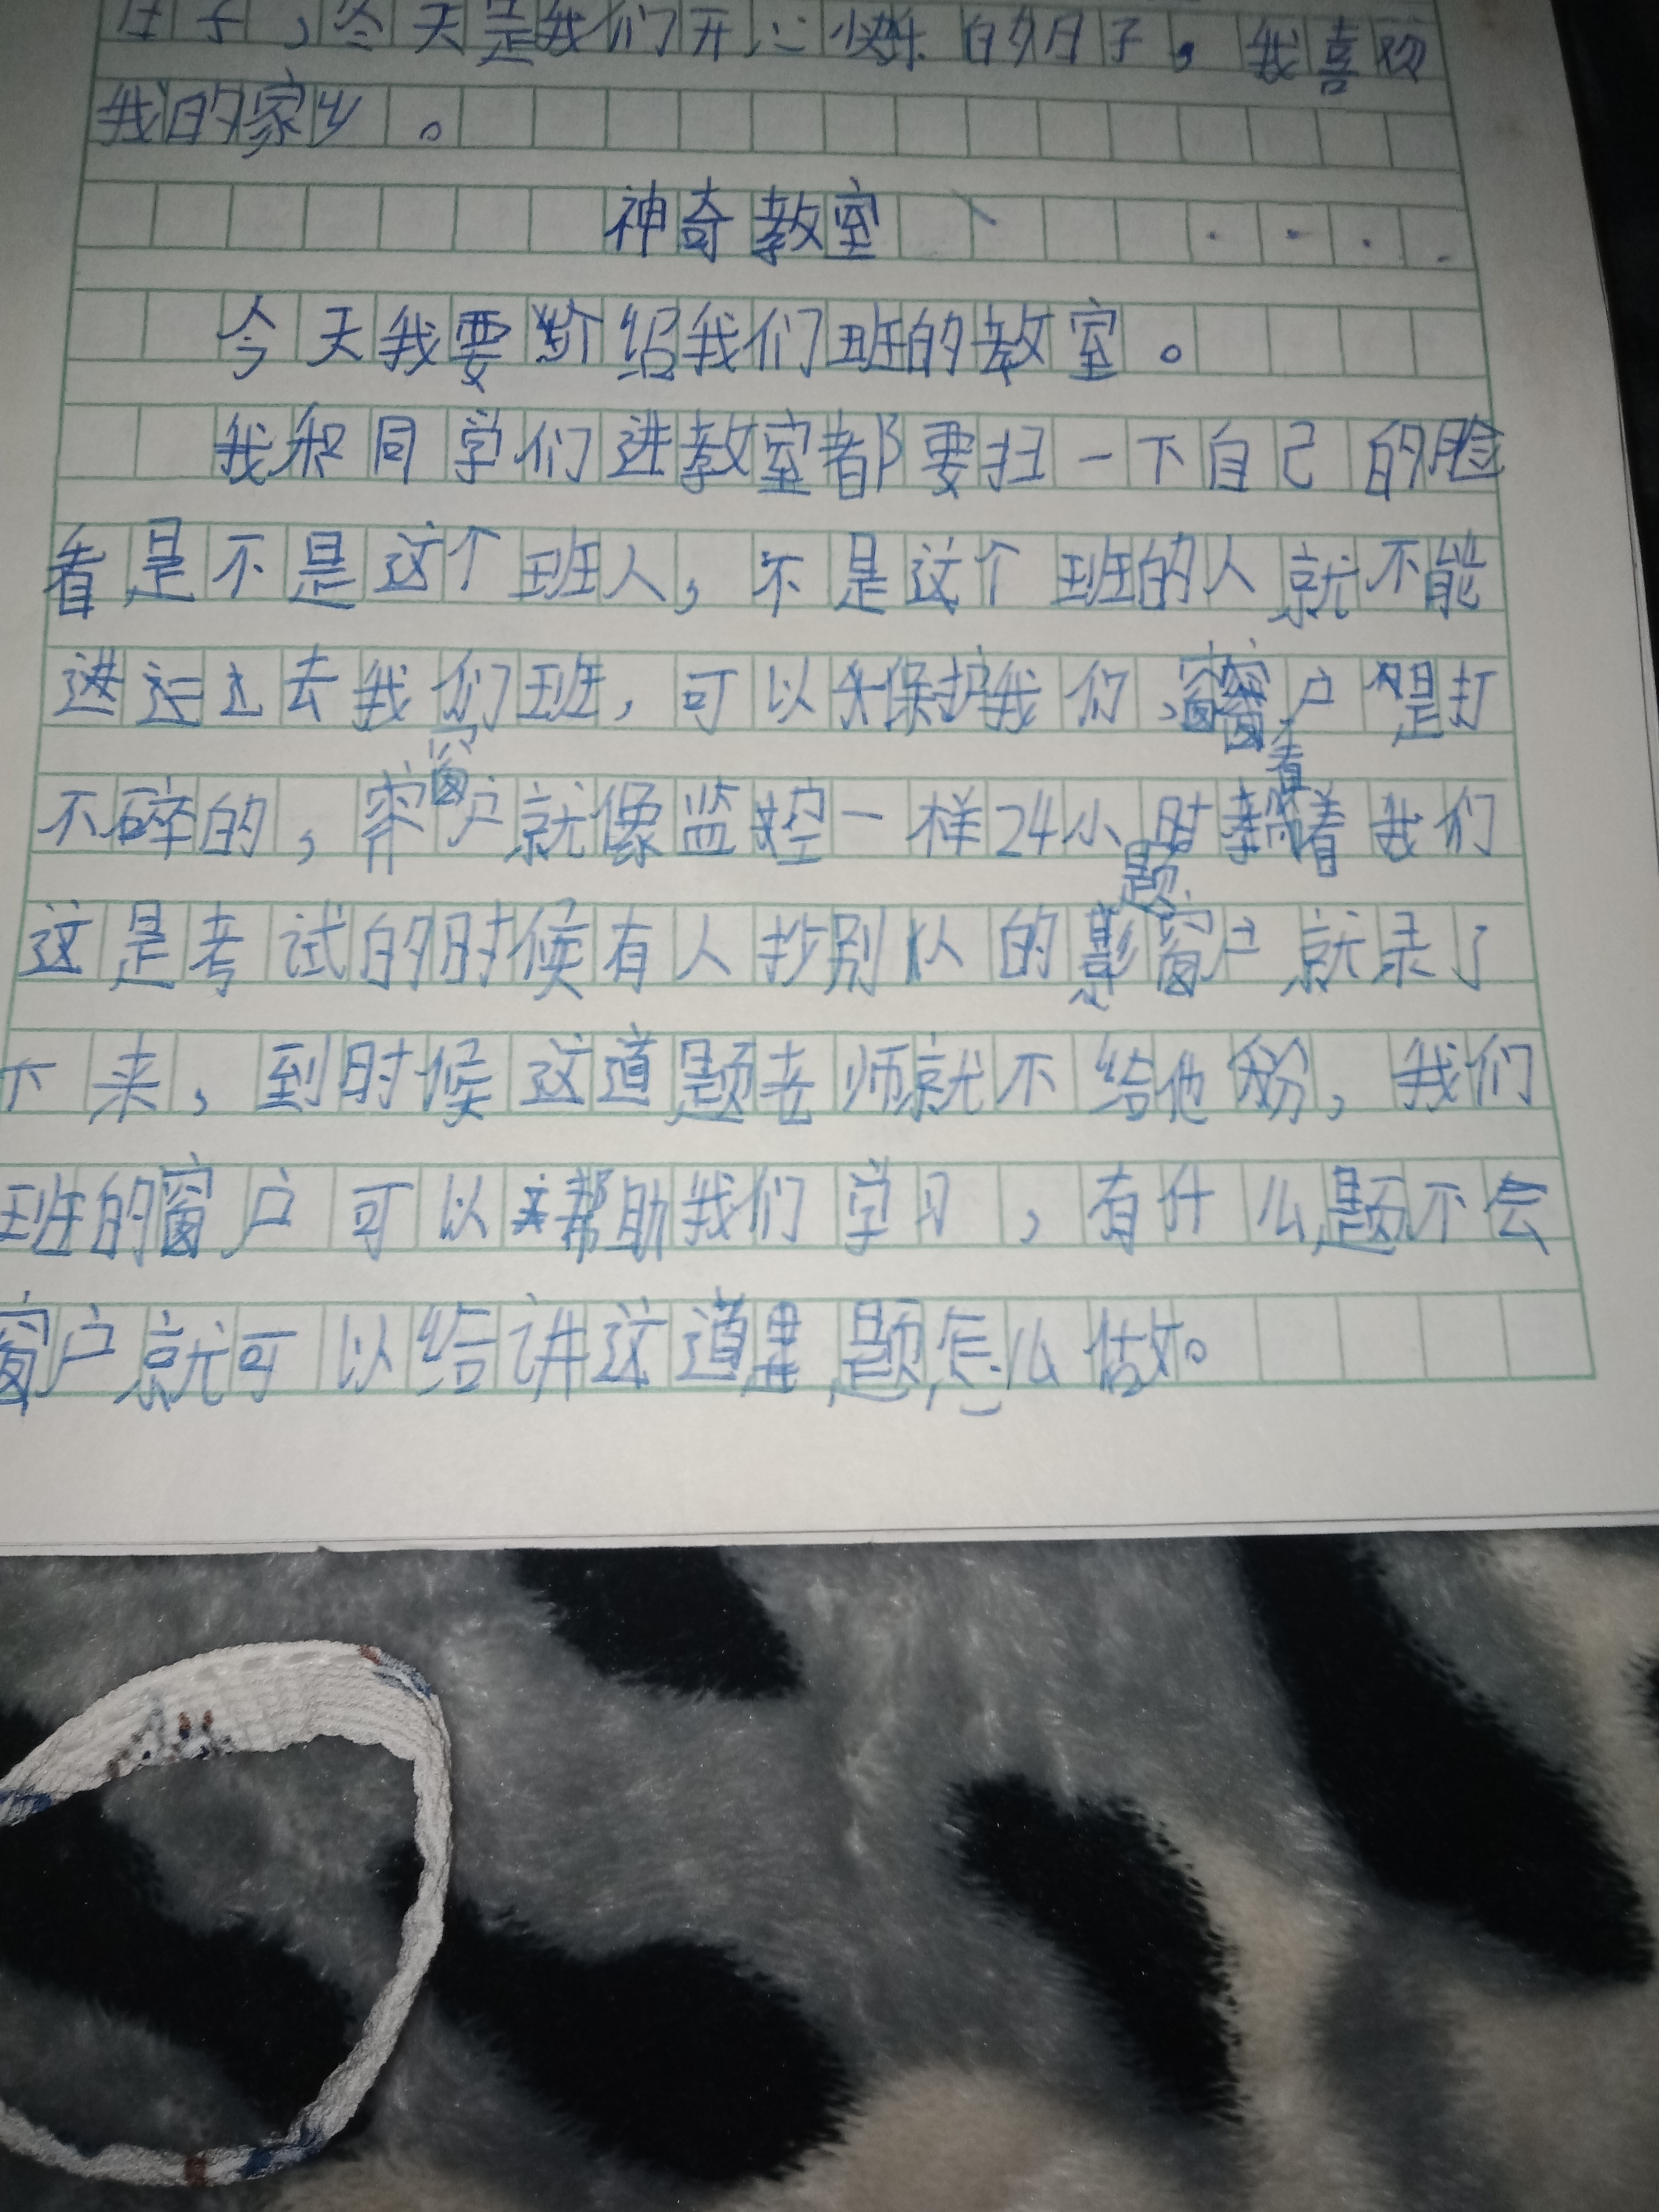 庄子,冬天是我们开心快乐的日子。我喜欢
我的家乡。
神奇教室
今天我要介绍我们班的教室。
我和同学们进教室都要扫一下自己的脸
看是不是这个班人,不是这个班的人就不能
进去我们班,可以保护我们,窗户是打
不碎的,窗户就像监控一样24小时看着我们
这是考试的时候有人抄别人的题窗户就录了
下来,到时候这道题老师就不给他分,我们
班的窗户可以帮助我们学习,有什么题不会
窗户就可以给讲这道题怎么做。